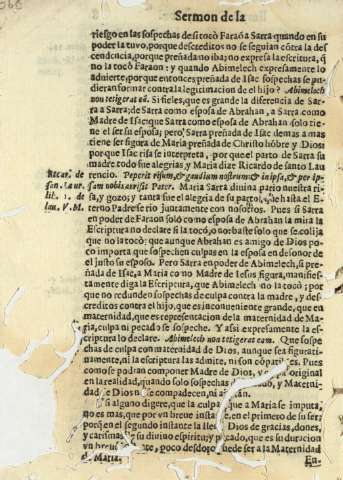 Sermon de la
riesgo en las sospechas de si tocò Faraõ a Sarra quando en su
poder la tuvo, porque descreditos no se seguian cõtra la des
cendencia, porque preñada no iba; no expressa la escritura, q̃
no la tocò Faraon: y quando Abimelech expressamente lo
advierte, por que entonces preñada de Isac sospechas se pu-
dieran formar contra la legitimacion de el hijo? Abimelech
non tetigerat eã. Si fieles, que es grande la diferencia de Sar-
ra a Sarra; de Sarra como esposa de Abrahan, a Sarra como
Madre de Isac; que Sarra como esposa de Abrahan solo tie-
ne el ser su esposa; pero, Sarra preñada de Isac demas a mas
tiene ser figura de Maria preñada de Christo hõbre y Dios
por que Isac risa se interpreta, por que el parto de Sarra su
madre todo fue alegrias y Maria dize Ricardo de santo Lau
Ricar. de rencio. Peperit risum, & gaudium nostrum & in ipsa, & per ip-
san. Laur. sam nobis arrisit Pater. Maria Sarra divina pario nuestra ri-
lib. de sa, y gozo; y tanta fue el alegria de su parto, que hasta el E-
lau. V. M. terno Padre se rio juntamente con nosotros. Pues si Sarra
en poder de Faraon solo como esposa de Abrahan la mira la
Escriptura no declare si la tocó, o no: baste solo que se colija
que no la tocò: que aunque Abrahan es amigo de Dios po-
co importa que sospechen culpas en la esposa en desonor de
el justo su esposo. Pero Sarra en poder de Abimelech, si pre
ñada de Isac, a Maria como Madre de Iesus figura, manifies-
tamente diga la Escriptura, que Abimelech no la tocò; por
que no redunden sospechas de culpa contra la madre, y des-
creditos contra el hijo, que es inconueniente grande, que en
maternidad, que es representacion de la maternidad de Ma-
ria, culpa ni pecado se sospeche. Y assi expresamente la es-
criptura lo declare. Abimelech non tetigerat eam. Que sospe
chas de culpa con maternidad de Dios, aunque sea figurati-
vamente, ni la escriptura las admite, ni son Pues
como se podran componer Madre de Dios, y original
en la realidad, quando solo sospechas y Materni-
dad de Dios no se compadecen, ni
si alguno digere, que la culpa que a Maria se imputa,
no es mas, que por vn breve instante, en el primero de su ser;
porq̃ en el segundo instante la lleno Dios de gracias, dones,
y carismas su divino espiritu; y que es su duracion
vn breve poco desdoro puede ser a la Maternidad
de Maria. En-